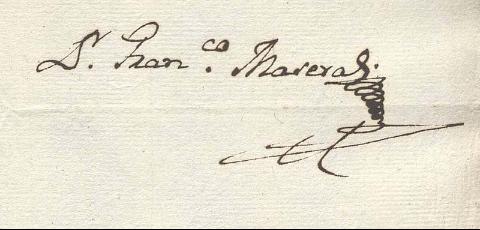 Dr. Franco. Maseras